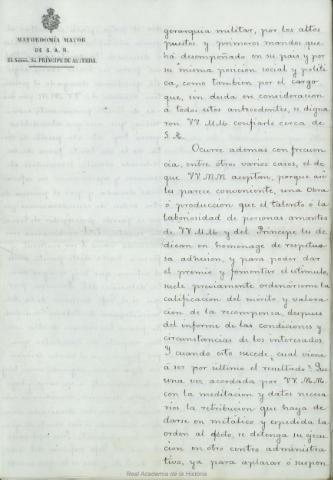 MAYORDOMÍA MAYOR
DE S. A. R.
EL SERMO. SR. PRÍNCIPE DE ASTURIAS.
gerarquia militar, por los altos
puestos y primeros mandos que
ha desempeñado en su pais y por
su misma posicion social y politi-
ca, como tambien por el cargo
que, sin duda en consideracion
a todos estos antecedentes, se digna
ron VV. MM. confiarle cerca de
S. A.
Ocurre ademas con frecuen
cia, entre otros varios casos, el de
que VV. MM. aceptan, porque asi
les parece conveniente, una Obra
ó produccion que el talento ó la
laboriosidad de personas amantes
de VV. MM. y del Principe les de-
dican en homenage de respetuo
sa adhesion, y para poder dar
el premio y fomentar el estimulo,
suele previamente ordenárseme la
calificacion del mérito y valora-
cion de la recompensa, despues
del informe de las condiciones y
circunstancias de los interesados.
Y cuando esto sucede, cual viene
á ser por último el resultado? Que
una vez acordada por VV. MM.
con la meditacion y datos necesa
rios la retribucion que haya de
darse en metálico y expedida la
orden al efecto, se detenga su ejecu
cion en otro centro administra
tivo, ya para aplazar ó suspen
Real Academia de la Historia